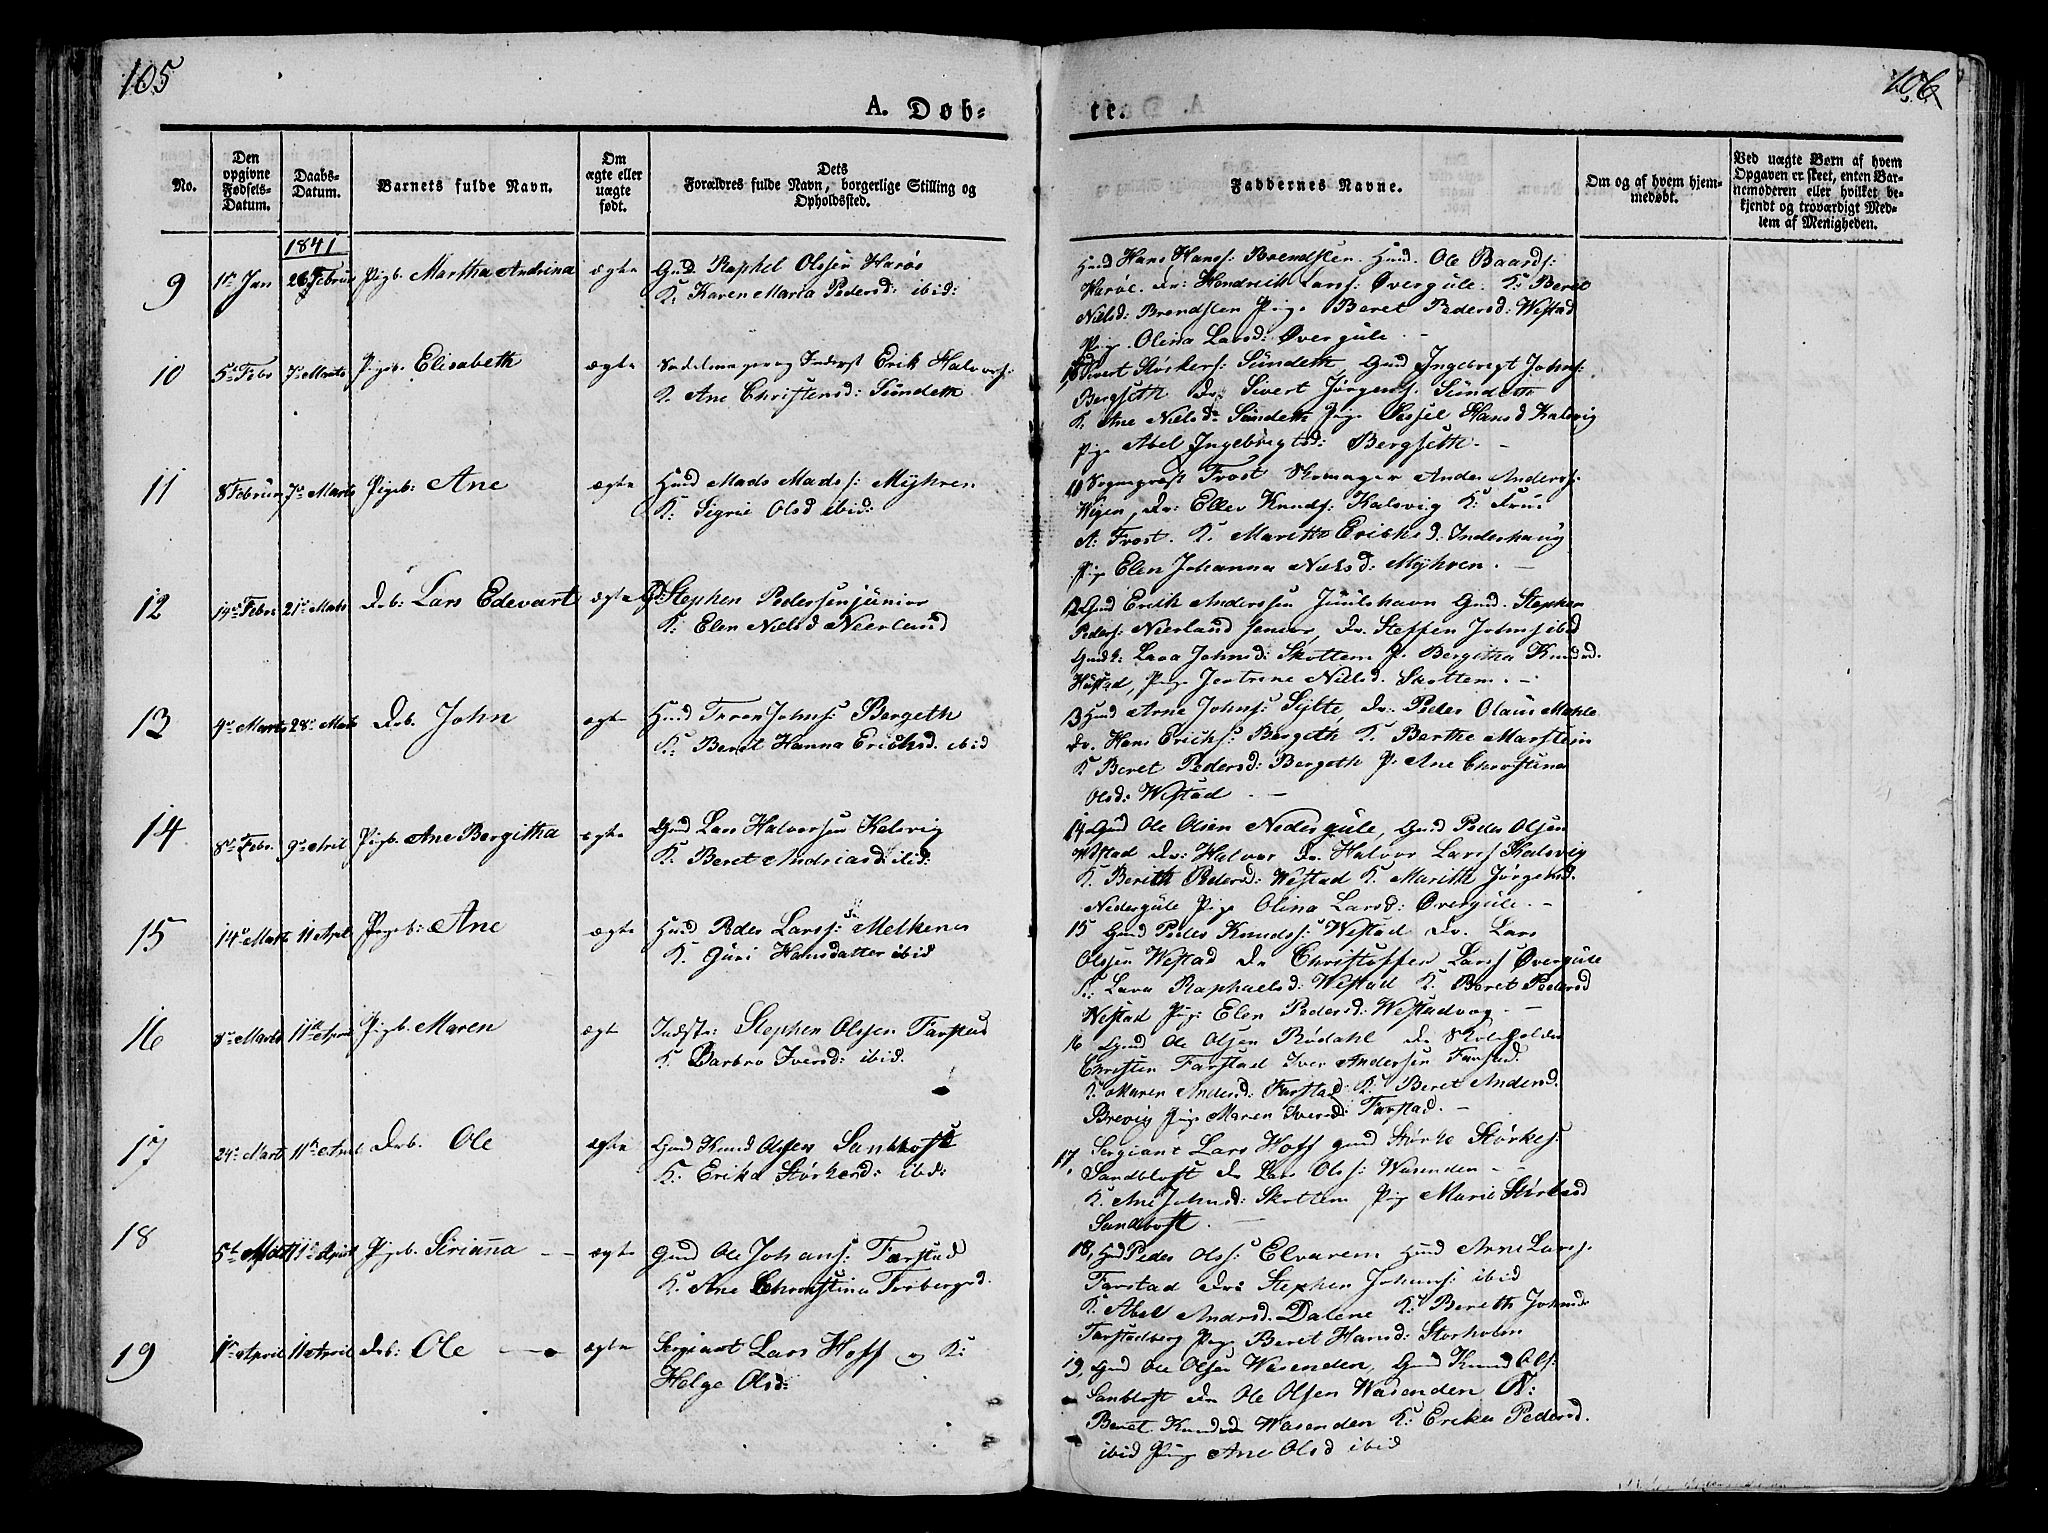 105
A. Døb-
No.
Den opgivne Fødsels-Datum.
Daabs-Datum.
Barnets fulde Navn.
Om ægte eller uægte født.
Dets Forældres fulde Navn, borgerlige Stilling og Opholdssted.
1841
9 1ste Jan 26 Februar Pigeb. Martha Andrina ægte Gmd. Raphel Olsen Harøe
K: Karen Maria Pedersd: ibid:
10 5te Febr 7de Marts Pigeb. Elisabeth ægte Erik Halvors:
K. Ane Christensd: Sundeth
11 8 Februar 7de Marts Pigeb: Ane ægte Huusmd Mads Mads: Myhren
K: Sigrie Olsd ibid:
12 14de Febr 21de Marts Drb: Lars Edevart ægte Stephen Pedersen junior
K: Elen Nielsd Neerland
13 4de Marts 28de Marts Drb. John ægte Huusmd Johns: Bergeth
K: Beret Hanna Erichsd. ibid
14 8de Febr. 9de April Pigeb. Ane Bergitha ægte Gmd Lars Halvorsen Kalsvig
K: Beret Andriasd: ibid:
15 14de Marts 11 April Pigeb: Ane ægte Huusmd Peder Larss: Melkenes
K. Guri Hansdatter ibid
16 8de Marts 11te April Pigeb. Maren ægte Indstr: Stephen Olsen Farstad
K: Barbro Iversd: ibid.
17 24de Marts 11te April Drb. Ole ægte Gmd Knud Olsen Sandbloft
K: Erika Størkersd: ibid:
18 5te Marts 11te April Pigeb. Sirianna ægte Gmd Ole Johans: Farstad
K: Ane Christina Torbergsd.
19 1ste April 11 April Drb: Ole ægte Sergiant Lars Hoff og K:
Helge Olsd:
106
te.
Faddernes Navne.
Om og af hvem hjemmedøbt.
Ved uægte Børn af hvem Opgaven er skeet, enten Barnemoderen eller hvilket bekjendt og troværdigt Medlem af Menigheden.
Hmd Hans Hans: Brendsten. Hmd. Ole Baards:
Harøe. Dr: Hendrik Lars: Øvergule. K: Beret
Nielsd: Brendsten Pige Beret Pedersd: Westad
Pige Olina Larsd: Øvergule.
10 Sivert Størkers: Sundeth, Gmd Ingebrigt Johns:
Bergseth Dr: Sivert Jørgens: Sundeth
K. Ane Nielsd: Sundeth Pige Sissel Hansd Kalsvig
Pige Abel Ingebrigtsd: Bergseth.
11 Sogneprest Frost Skomager Anders Anderss:
Wigen, Dr: Ellev Knuds: Kalsvig K: Frue
A: Frost. K. Marith Erichsd. Inderhaug
Pige Elen Johanna Nielsd: Myhren.
12 Gmd Erich Anderssen Juulshavn Gmd. Stephen
Peders: Neerland senior, Dr. Steffen Johns ibid
Lava Johnsd: Skottem P. Bergitha Knudsd.
Hustad, Pige Nielsd. Skottem.
13 Hmd Arne Johns: Sylte, Dr. Peder Olaus Male
Dr. Hans Erichs: Bergeth K. Berthe Marstein
K Beret Pedersd: Bergeth P. Ane Christina
Olsd: Westad
14 Gmd Ole Olsen Nedergule, Gmd Peder Olsen
Westad Dr: Halvor Dr. Halvor Lars: Kalsvig
K. Berith Pedersd: Westad K. Marith Jørgensd.
Nedergule Pige Olina Larsd: Øvergule.
15 Gmd Peder Knuds: Westad Dr. Lars
Olssen Westad Dr Christoffer Lars: Øvergule
K: Lava Raphaelsd: Westad K. Beret Pedersd
Westad Pige Elen Pedersd: Westadvog
16 Gmd Ole Olsen Rødahl Dr Skoleholder
Christen Farstad Iver Andersen Farstad.
K. Maren Andersd: Farstad K: Beret Andersd.
Brevig Pige Maren Iversd: Farstad.
17, Sergiant Lars Hoff gmd Størke Størkes:
Sandbloft Dr Lars Ols: Wasenden
K. Ane Johnsd: Skottem Pige Marie Størkersd
Sandbloft.
18, Hmd Peder Ols: Elvarem Hmd Arne Lars:
Farstad Dr: Stephen Johans: ibid
K. Abel Andrsd. Dalene K: Bereth Johnsd:
Farstadberg Pige Beret Hansd: Storholm
19, Gmd Ole Olsen Wasenden, Gmd Knud Ols:
Sanbloft Dr Ole Olsen Wasenden K:
Beret Knudsd Wasenden K: Erika Pedersd.
ibid Pige Ane Olsd ibid